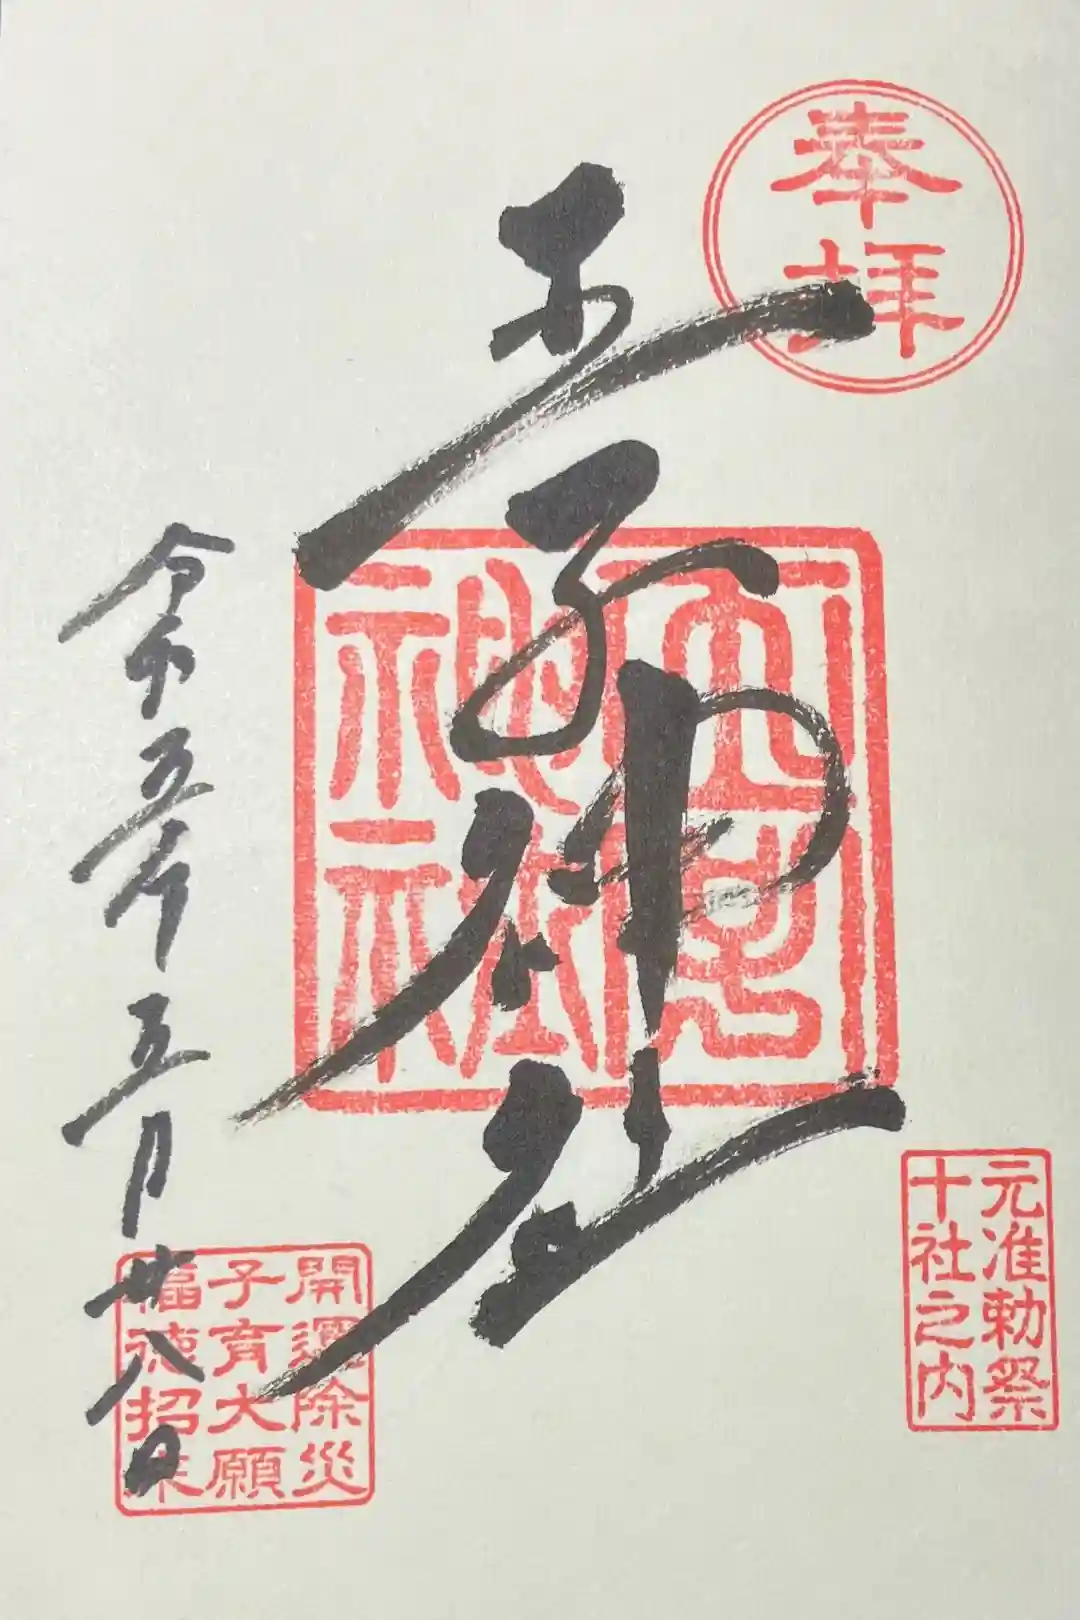 奉拝
元准勅祭
十社之内
王子神社
王子
神社
開運除災
子育大願
福徳招来
令和五年五月廿八日